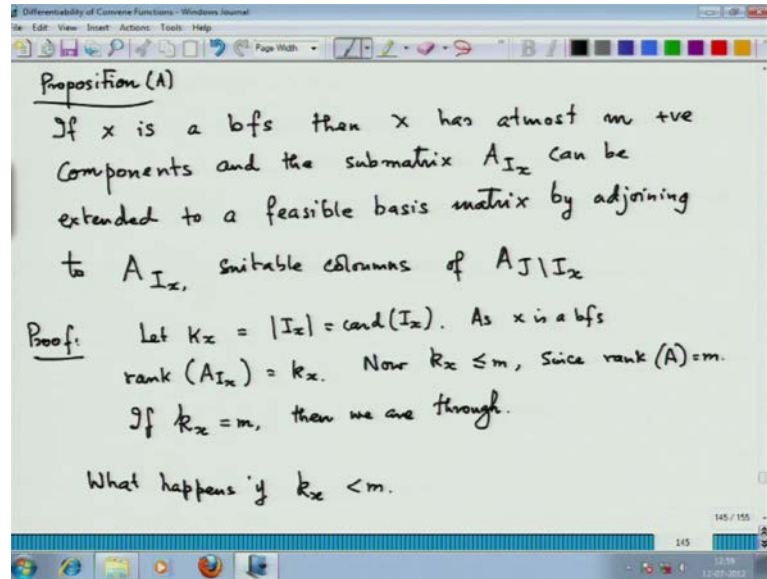 Differentiability of Convene Functions - Windows Journal
File Edit View Insert Actions Tools Help
Page Width
Proposition (A)
If x is a bfs then x has atmost m +ve
components and the submatrix A_{I_x} can be
extended to a feasible basis matrix by adjoining
to A_{I_x}, suitable coloumns of A_{J\I_x}
Proof: Let K_x = |I_x| = card(I_x). As x is a bfs
rank (A_{I_x}) = k_x. Now k_x ≤ m, Since rank (A) = m.
If k_x = m, then we are through.
What happens if k_x < m.
145 / 155
145
12:59
12-07-2012